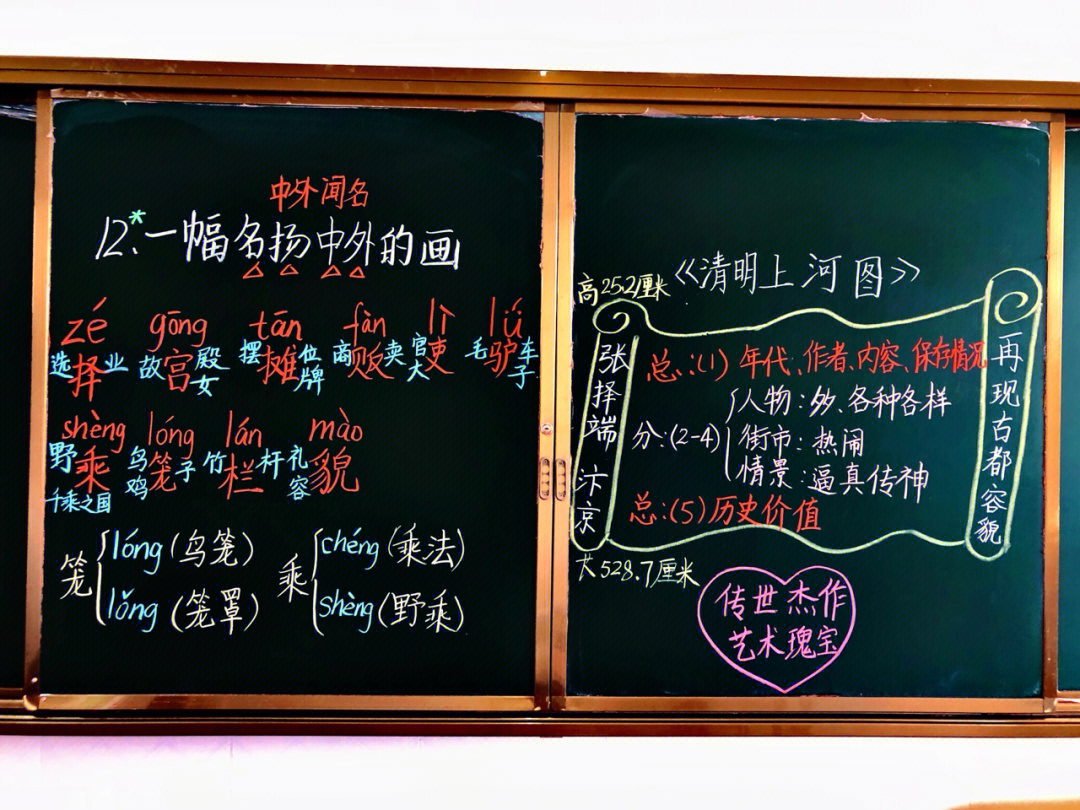 中外闻名
12.*一幅名扬中外的画
zé gōng tān fàn lì lǘ
选择业 故宫殿女 摆摊位牌 商贩卖 官吏大 毛驴车子
shèng lóng lán mào
野乘 鸟笼子 竹栏杆 礼貌
千乘之国 鸡 容
笼 lóng(鸟笼)
lǒng(笼罩)
乘 chéng(乘法)
shèng(野乘)
《清明上河图》
高25.2厘米
张择端 汴京
总:(1)年代、作者、内容、保存情况
分:(2-4)
人物:多、各种各样
街市:热闹
情景:逼真传神
总:(5)历史价值
再现古都容貌
长528.7厘米
传世杰作
艺术瑰宝